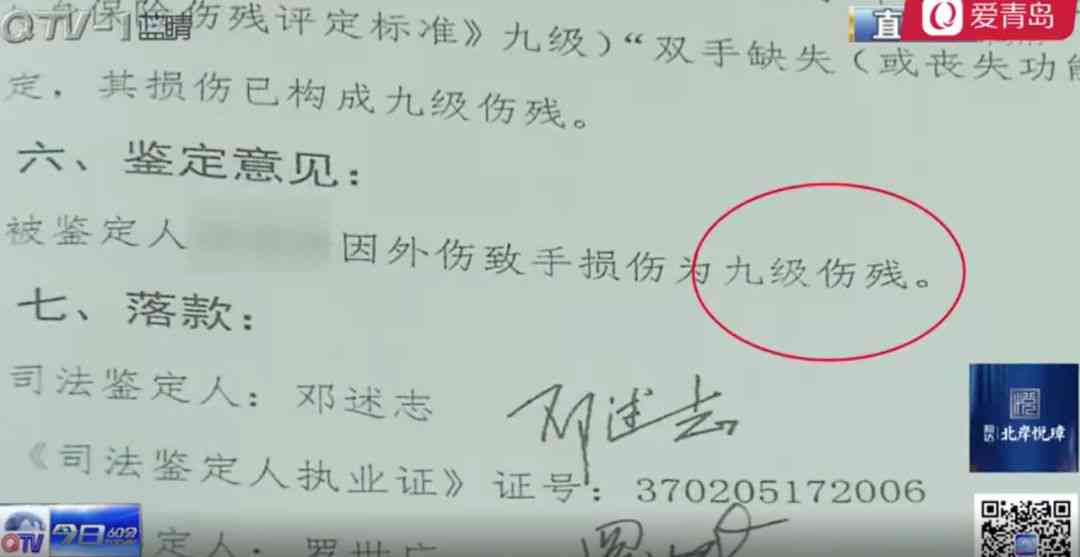 QTV-1 蓝睛
直
爱青岛
保险伤残评定标准》九级)“双手缺失(或丧失功能
定，其损伤已构成九级伤残。
六、鉴定意见：
被鉴定人 因外伤致手损伤为九级伤残。
七、落款：
司法鉴定人：邓述志 邓述志
《司法鉴定人执业证》证号：370205172006
定人：罗世广
北岸悦璋
QTV 今日60分